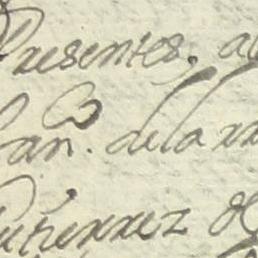 Presentes, a
San. de la xx
Gutierrez de